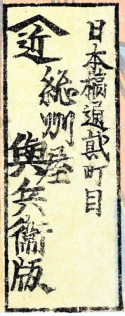 日本橋通貳町目
近
総州屋
與兵衛版